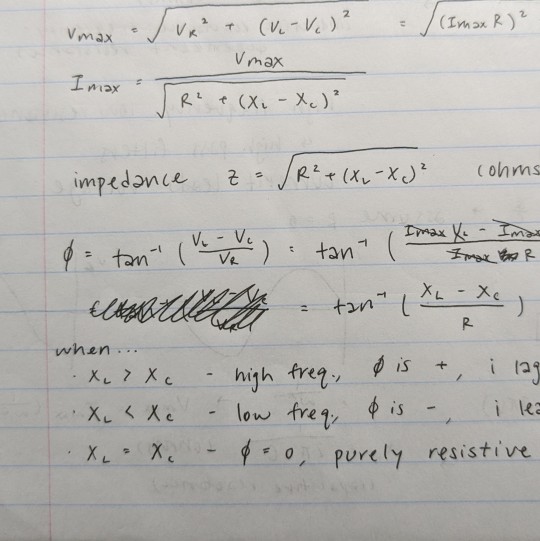 Vmax = √(V_R² + (V_L - V_C)²) = √((Imax R)²
Imax = Vmax / √(R² + (X_L - X_C)²)
impedance Z = √(R² + (X_L - X_C)²) (ohms
φ = tan⁻¹ ((V_L - V_C)/V_R) = tan⁻¹ ((Imax X_L - Imax / Imax R
= tan⁻¹ ((X_L - X_C)/R)
when...
· X_L > X_C - high freq., φ is +, i lag
· X_L < X_C - low freq., φ is -, i lea
· X_L = X_C - φ = 0, purely resistive